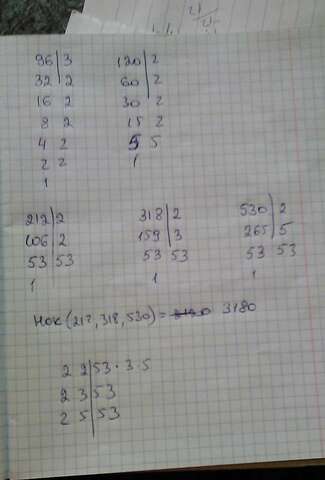 96 | 3 120 | 2
32 | 2 60 | 2
16 2 30 | 2
8 2 15 2
4 2 5 5
2 2 1
1
212 | 2 318 | 2 530 | 2
106 | 2 159 | 3 265 | 5
53 | 53 53 53 53 53
1 1 1
НОК (212, 318, 530) = 3180
2 2 | 53 · 3 · 5
2 3 | 53
2 5 | 53